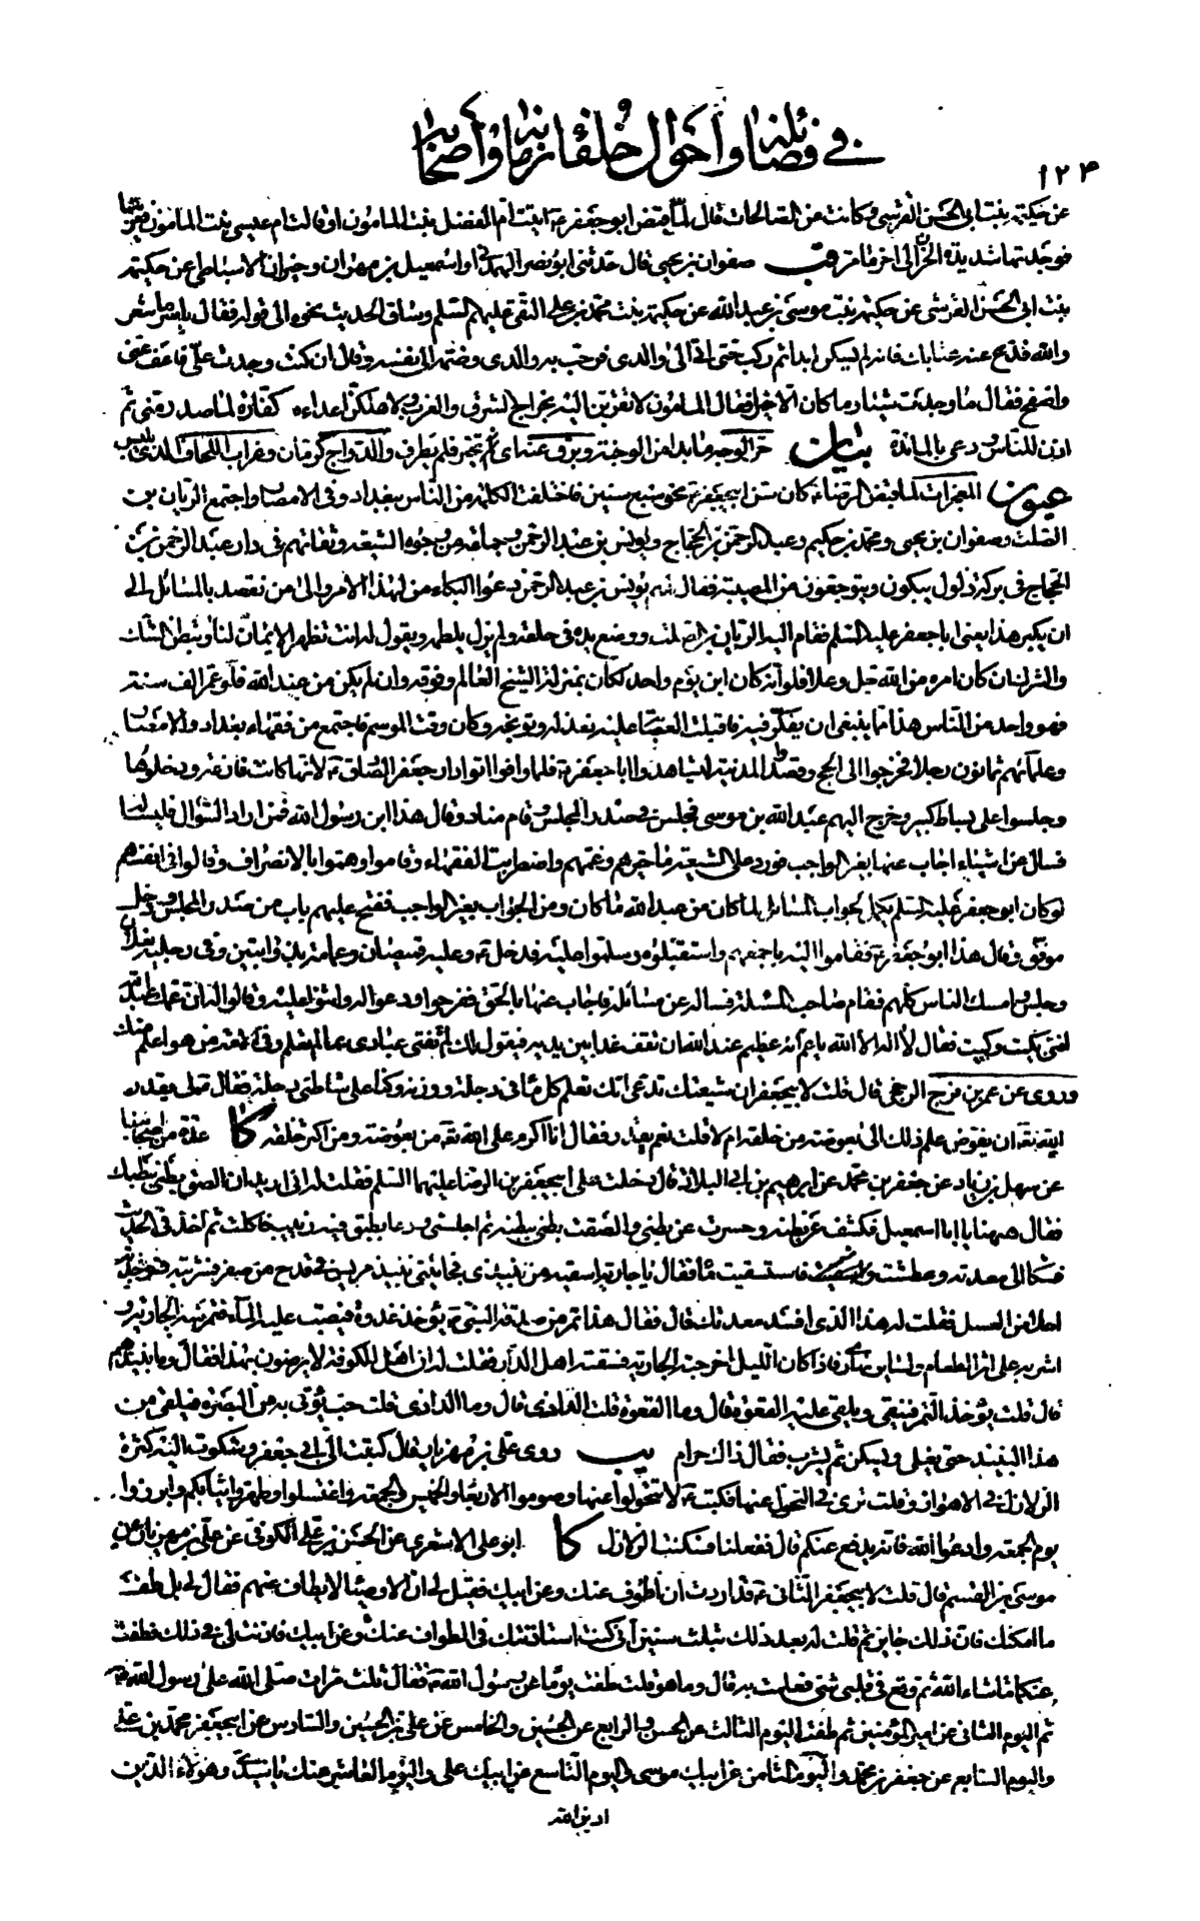 في فضائله واحوال خلفاء زمانه واصحابه
١٢٤
عن حكيمة بنت ابى الحسن القرشى وكانت من الصالحات قال لما قبض ابو جعفر ع اتيت ام الفضل بنت المامون او قالت ام عيسى بنت المامون فعزيتها
فوجدتها شديدة الحزن الى اخر ما مر صفوان بن يحيى قال حدثنى ابو نصر الهمدانى واسمعيل بن مهران وخيران الاسباطى عن حكيمة
بنت ابى الحسن القرشى عن حكيمة بنت موسى بن عبد الله عن حكيمة بنت محمد بن على التقى عليهم السلم وساق الحديث نحوه الى قوله فقال ياسر ما شعر
والله فدع عنه عتابك فانه لم يسكر ابدا ثم ركب حتى اتى الى والدى فرحب به والدى وضمه الى نفسه وقال ان كنت وجدت على فاعف عنى
واصفح فقال ما وجدت شيئا وما كان الا خيرا فقال المامون لاتقربن اليه بخراج الشرق والغرب ولاهلكن اعداءه كفارة لما صدر منى ثم
اذن للناس ودعى بالمائدة بيان حر الوجه ما بدا من الوجنة وبرق عينه اى تحير فلم يطرف والدواج كرمان وغراب اللحاف الذى يلبس
عيون المعجزات لما قبض الرضا ع كان سن ابيجعفر ع نحو سبع سنين فاختلفت الكلمة من الناس ببغداد وفى الامصار واجتمع الريان بن
الصلت وصفوان بن يحيى ومحمد بن حكيم وعبد الرحمن بن الحجاج ويونس بن عبد الرحمن وجماعة من وجوه الشيعة وثقاتهم فى دار عبد الرحمن بن
الحجاج فى بركة زلول يبكون ويتوجعون من المصيبة فقال لهم يونس بن عبد الرحمن دعوا البكاء من لهذا الامر والى من نقصد بالمسائل الى
ان يكبر هذا يعنى ابا جعفر عليه السلم فقام اليه الريان بن الصلت ووضع يده فى حلقه ولم يزل يلطمه ويقول له انت تظهر الايمان لنا وتبطن الشك
والشرك ان كان امره من الله جل وعلا فلو انه كان ابن يوم واحد لكان بمنزلة الشيخ العالم وفوقه وان لم يكن من عند الله فلو عمر الف سنة
فهو واحد من الناس هذا مما ينبغى ان يفكر فيه فاقبلت العصابة عليه تعذله وتوبخه وكان وقت الموسم فاجتمع من فقهاء بغداد والامصار
وعلمائهم ثمانون رجلا فخرجوا الى الحج وقصدوا المدينة ليشاهدوا ابا جعفر ع فلما وافوا اتوا دار جعفر الصادق ع لانها كانت فارغة ودخلوها
وجلسوا على بساط كبير وخرج اليهم عبد الله بن موسى فجلس فى صدر المجلس وقام مناد وقال هذا ابن رسول الله فمن اراد السؤال فليسئله
فسئل عن اشياء اجاب عنها بغير الواجب فورد على الشيعة ما حيرهم وغمهم واضطربت الفقهاء وقاموا وهموا بالانصراف وقالوا فى انفسهم
لو كان ابو جعفر عليه السلم يكمل لجواب المسائل لما كان من عبد الله ما كان ومن الجواب بغير الواجب ففتح عليهم باب من صدر المجلس ودخل
موفق وقال هذا ابو جعفر ع فقاموا اليه باجمعهم واستقبلوه وسلموا عليه فدخل ع وعليه قميصان وعمامة بذوابتين وفى رجليه نعلان
وجلس وامسك الناس كلهم فقام صاحب المسئلة فساله عن مسائله فاجاب عنها بالحق ففرحوا ودعوا له واثنوا عليه وقالوا له ان عمك عبد الله
افتى بكيت وكيت فقال لا اله الا الله يا عم انه عظيم عند الله ان تقف غدا بين يديه فيقول لك لم تفتى عبادى بما لم تعلم وفى الامة من هو اعلم منك
وروى عن عمر بن فرج الرخجى قال قلت لابيجعفر ان شيعتك تدعى انك تعلم كل ماء فى دجلة ووزنه وكنا على شاطئ دجلة فقال ع لى يقدر
الله تعالى ان يفوض علم ذلك الى بعوضة من خلقه ام لا قلت نعم يقدر فقال انا اكرم على الله تع من بعوضة ومن اكثر خلقه كا عدة من اصحابنا
عن سهل بن زياد عن جعفر بن محمد عن ابرهيم بن ابى البلاد قال دخلت على ابيجعفر بن الرضا عليهما السلم فقلت له انى اريد ان الصق بطنى ببطنك
فقال ههنا يا ابا اسمعيل فكشف عن بطنه وحسرت عن بطنى والصقت بطنى ببطنه ثم اجلسنى ودعا بطبق فيه زبيب فاكلت ثم اخذ فى الحديث
فشكا الى معدته وعطشت فاستسقيت ماء فقال يا جارية اسقيه من نبيذى فجائتنى بنبيذ مريس فى قدح من صفر فشربته فوجدته
احلى من العسل فقلت له هذا الذى افسد معدتك قال فقال هذا تمر من صدقة النبى ص يؤخذ غدوة فيصب عليه الماء فتمرسه الجارية و
اشربه على اثر الطعام ولسائر نهارى فاذا كان الليل اخرجته الجارية فسقته اهل الدار فقلت له ان اهل الكوفة لا يرضون بهذا فقال وما نبيذهم
قال قلت يؤخذ التمر فينقى ويلقى عليه القعوة قال وما القعوة قلت الداذى قال وما الداذى قلت حب يؤتى به من البصرة فيلقى فى
هذا النبيذ حتى يغلى ويسكن ثم يشرب فقال ذاك حرام يب روى على بن مهزيار قال كتبت الى ابى جعفر وشكوت اليه كثرة
الزلازل فى الاهواز وقلت ترى لى التحول عنها فكتب ع لا تتحولوا عنها وصوموا الاربعاء والخميس والجمعة واغتسلوا وطهروا ثيابكم وابرزوا
يوم الجمعة وادعوا الله فانه يدفع عنكم قال ففعلنا فسكنت الزلازل كا ابو على الاشعرى عن الحسن بن على الكوفى عن على بن مهزيار عن
موسى بن القسم قال قلت لابيجعفر الثانى ع قد اردت ان اطوف عنك وعن ابيك فقيل لى ان الاوصياء لا يطاف عنهم فقال لى بل طف
ما امكنك فان ذلك جايز ثم قلت له بعد ذلك بثلث سنين انى كنت استاذنتك فى الطواف عنك وعن ابيك فاذنت لى فى ذلك فطفت
عنكما ما شاء الله ثم وقع فى قلبى شئ فعملت به قال وما هو قلت طفت يوما عن رسول الله ص فقال ثلث مرات صلى الله على رسول الله
ثم اليوم الثانى عن امير المؤمنين ثم طفت اليوم الثالث عن الحسن والرابع عن الحسين والخامس عن على بن الحسين والسادس عن ابيجعفر محمد بن على
واليوم السابع عن جعفر بن محمد واليوم الثامن عن ابيك موسى واليوم التاسع عن ابيك على واليوم العاشر عنك يا سيدى وهؤلاء الذين
ادين الله